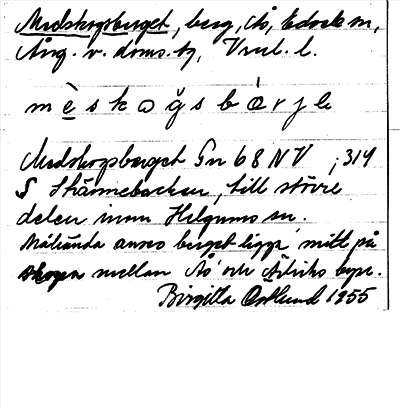 Medskogsberget, berg, Ås, Edsele sn,
Ång. v. doms. tg, Vnrl. l.
m è s k ɷ g̊ s b æ r j e
Medskogsberget Gn 68 NV ; 314
S Stånnebacken, till större
delen inom Helgums sn.
Målsända anses berget ligga mitt på
skogen mellan Ås och Ådriks byar.
Birgitta Östlund 1955